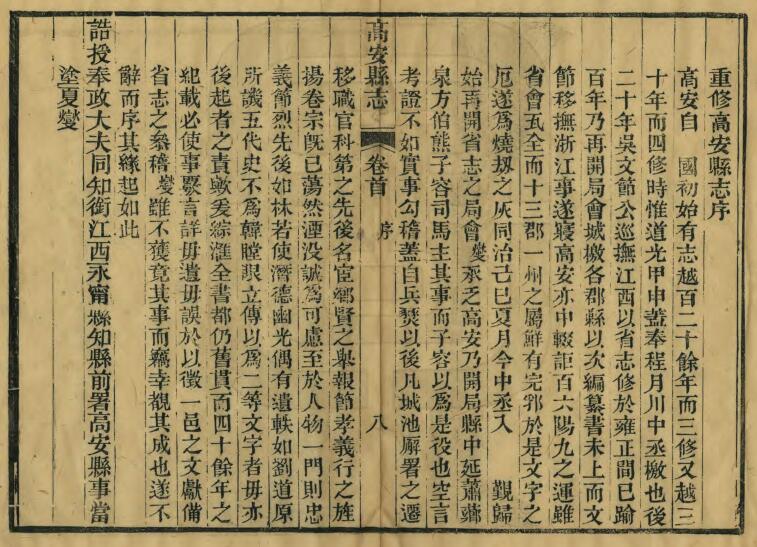 重修高安縣志序
高安自 國初始有志越百二十餘年而三修又越三
十年而四修時惟道光甲申蓋奉程月川中丞檄也後
二十年吳文節公巡撫江西以省志修於雍正間已踰
百年乃再開局會城檄各郡縣以次編纂書未上而文
節移撫浙江事遂寢高安亦中輟詎百六陽九之運雖
省會瓦全而十三郡一州之屬鮮有完邦於是文字之
厄遂爲燒刼之灰同治己巳夏月今中丞入 覲歸
始再開省志之局會燮承乏高安乃開局縣中延蕭
泉方伯熊子容司馬主其事而子容以爲是役也空言
考證不如實事勾稽蓋自兵燹以後凡城池廨署之遷
高安縣志 卷首 序 八
移職官科第之先後名宦鄉賢之舉報節孝義行之旌
揚卷宗旣已蕩然湮没誠爲可慮至於人物一門則忠
義節烈先後如林若使潛德幽光偶有遺軼如劉道原
所譏五代史不爲韓瞠眼立傳以爲二等文字者毋亦
後起者之責歟爰綜滙全書都仍舊貫而四十餘年之
紀載必使事覈言詳毋遺毋誤於以徵一邑之文獻備
省志之叅稽燮雖不獲竟其事而竊幸覩其成也遂不
辭而序其緣起如此
誥授奉政大夫同知銜江西永甯縣知縣前署高安縣事當
塗夏燮